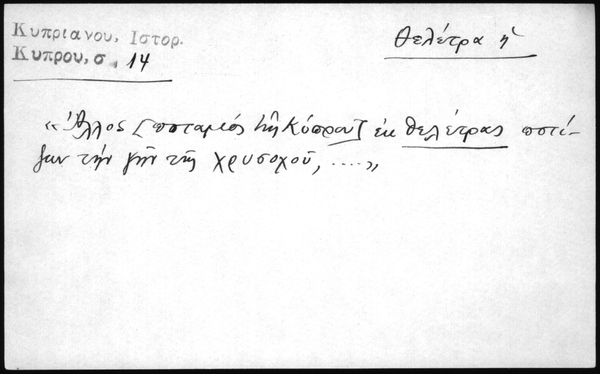 Κυπριανού, Ιστορ.
Κυπρου, σ. 14
Θελέτρα ἡ
«Ἄλλος [ποταμὸς τῆς Κύπρου] ἐκ Θελέτρας ποτί-
ζων τὴν γῆν τῆς Χρυσοχοῦ, ....»